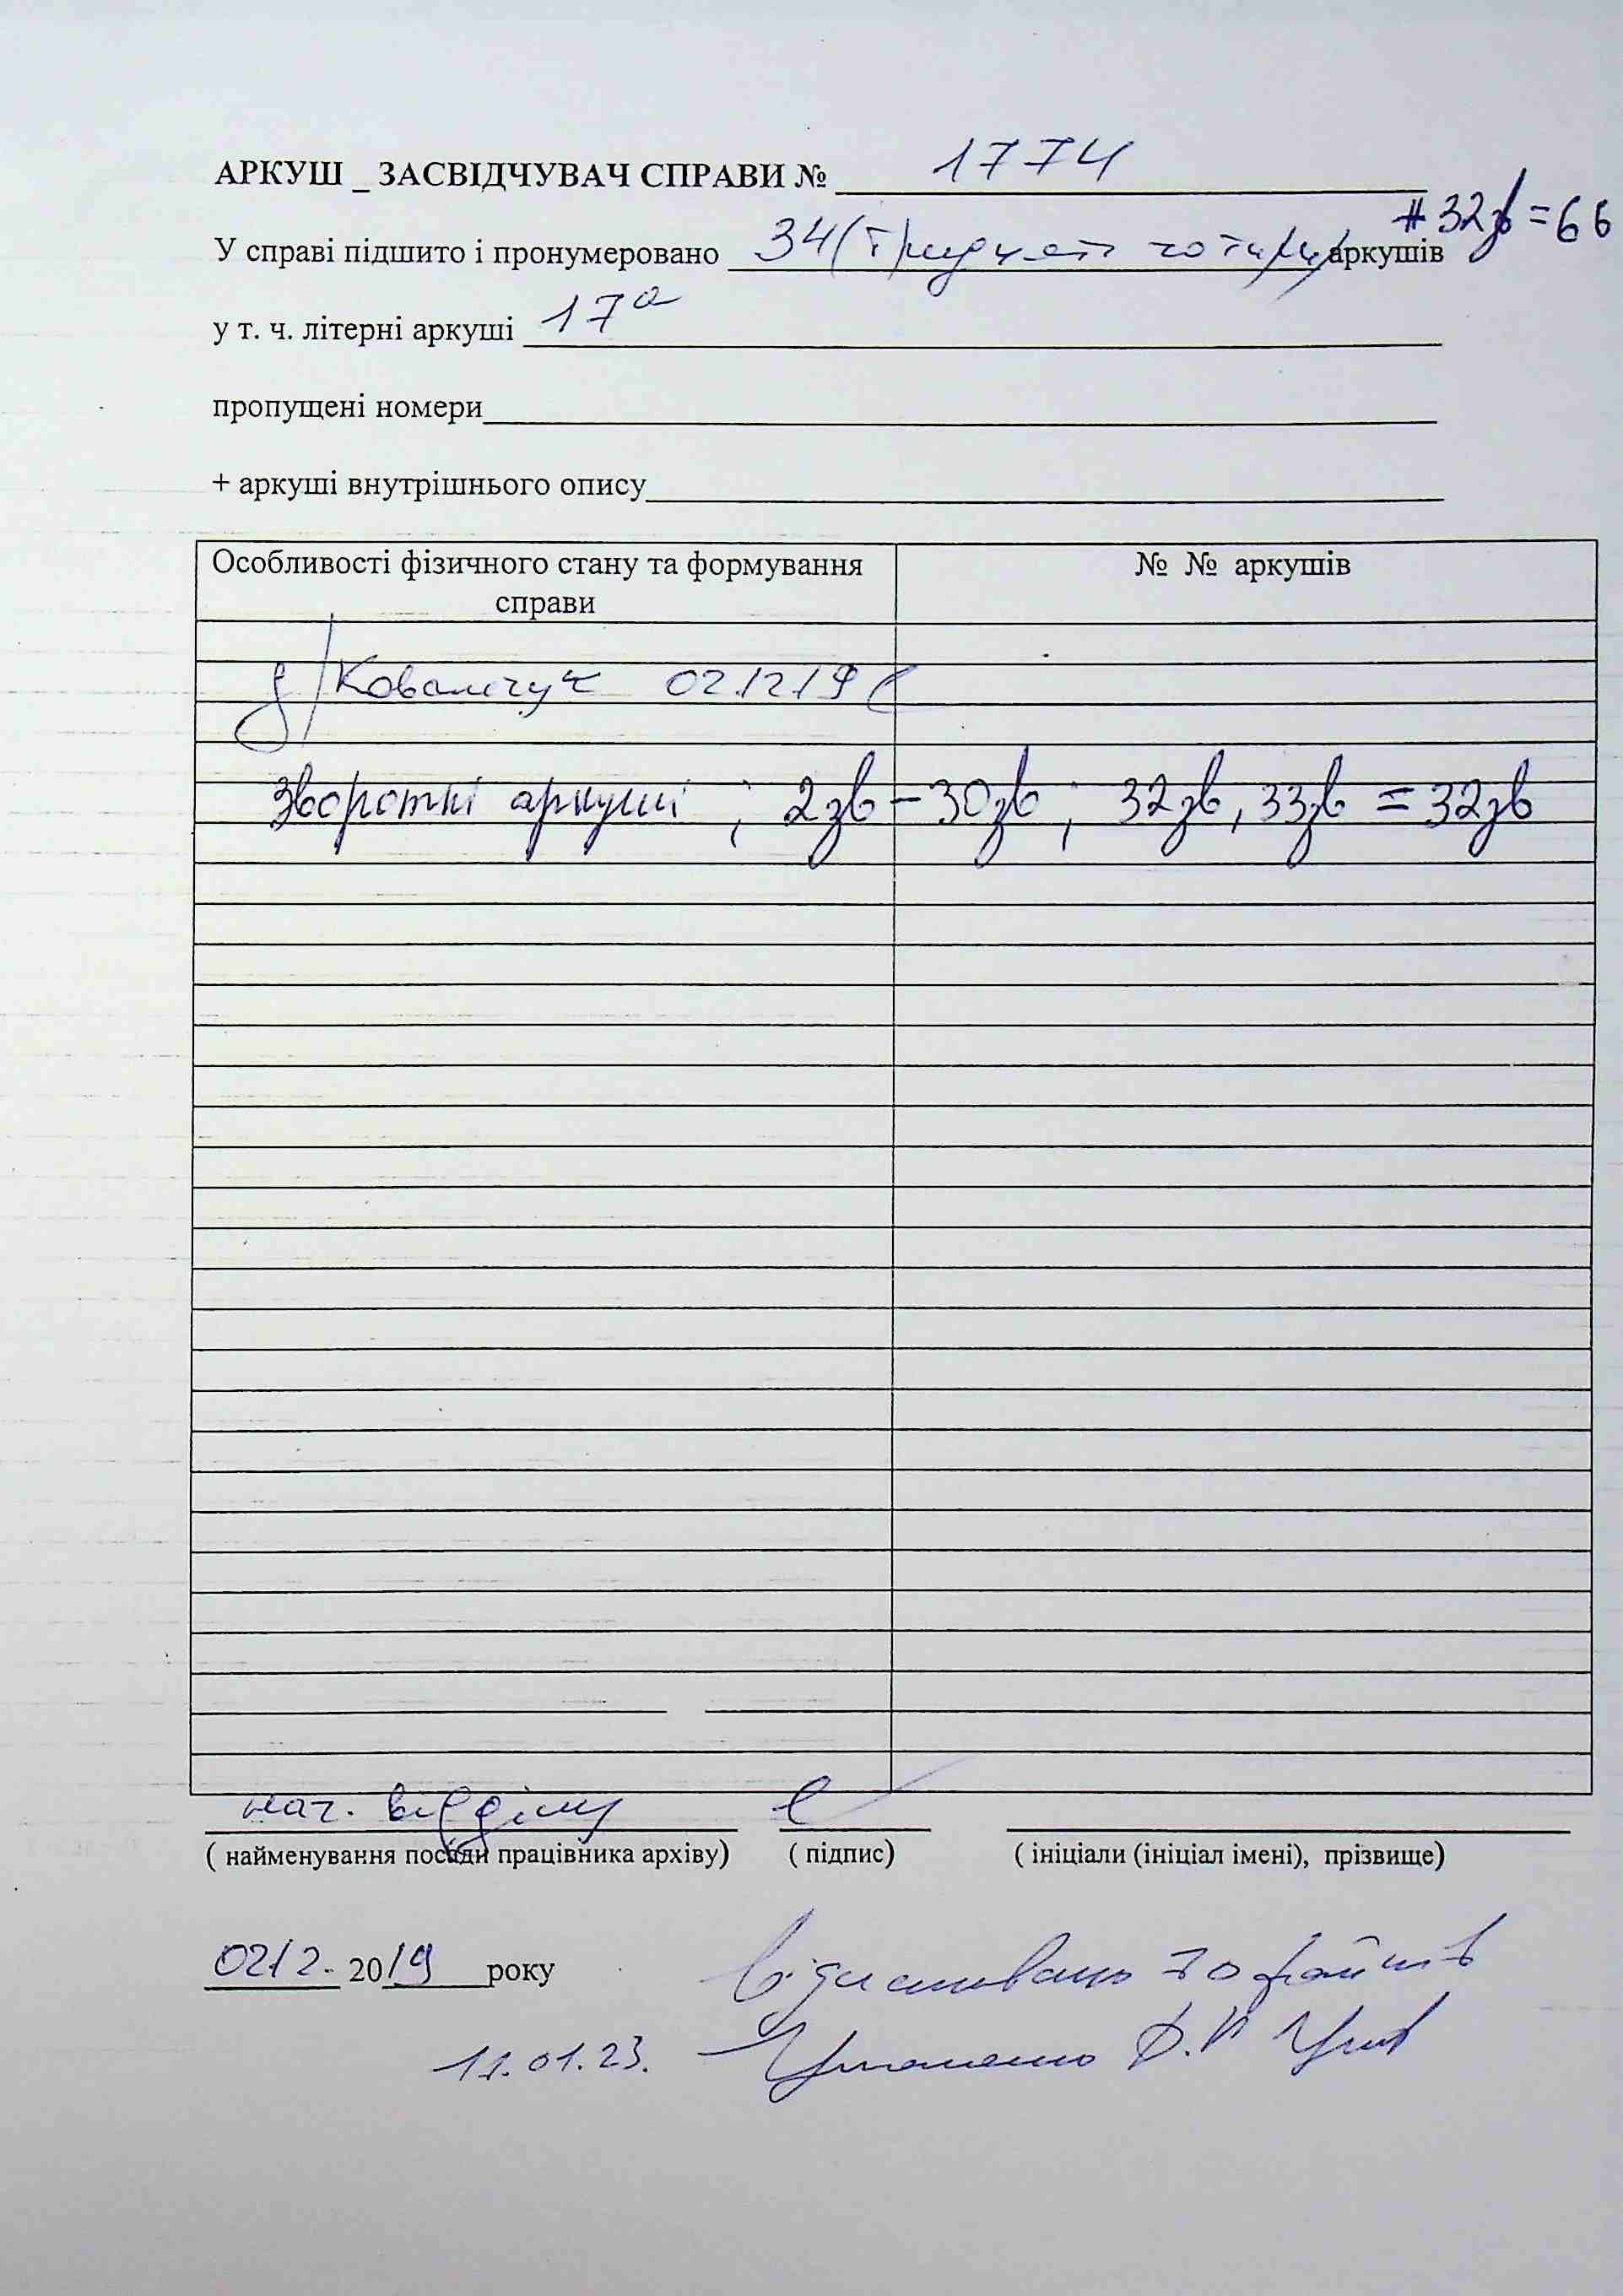 АРКУШ _ ЗАСВІДЧУВАЧ СПРАВИ № 1774
У справі підшито і пронумеровано 34 (тридцять чотири) аркушів + 32зв = 66
у т. ч. літерні аркуші 17а
пропущені номери
+ аркуші внутрішнього опису
Особливості фізичного стану та формування справи
№ № аркушів
Ковальчук 02.12.19
Зворотні аркуші ; 2зв – 30зв ; 32зв, 33зв = 32зв
нач. відділу
( найменування посади працівника архіву) ( підпис) ( ініціали (ініціал імені), прізвище)
0212. 2019 року
11.01.23.